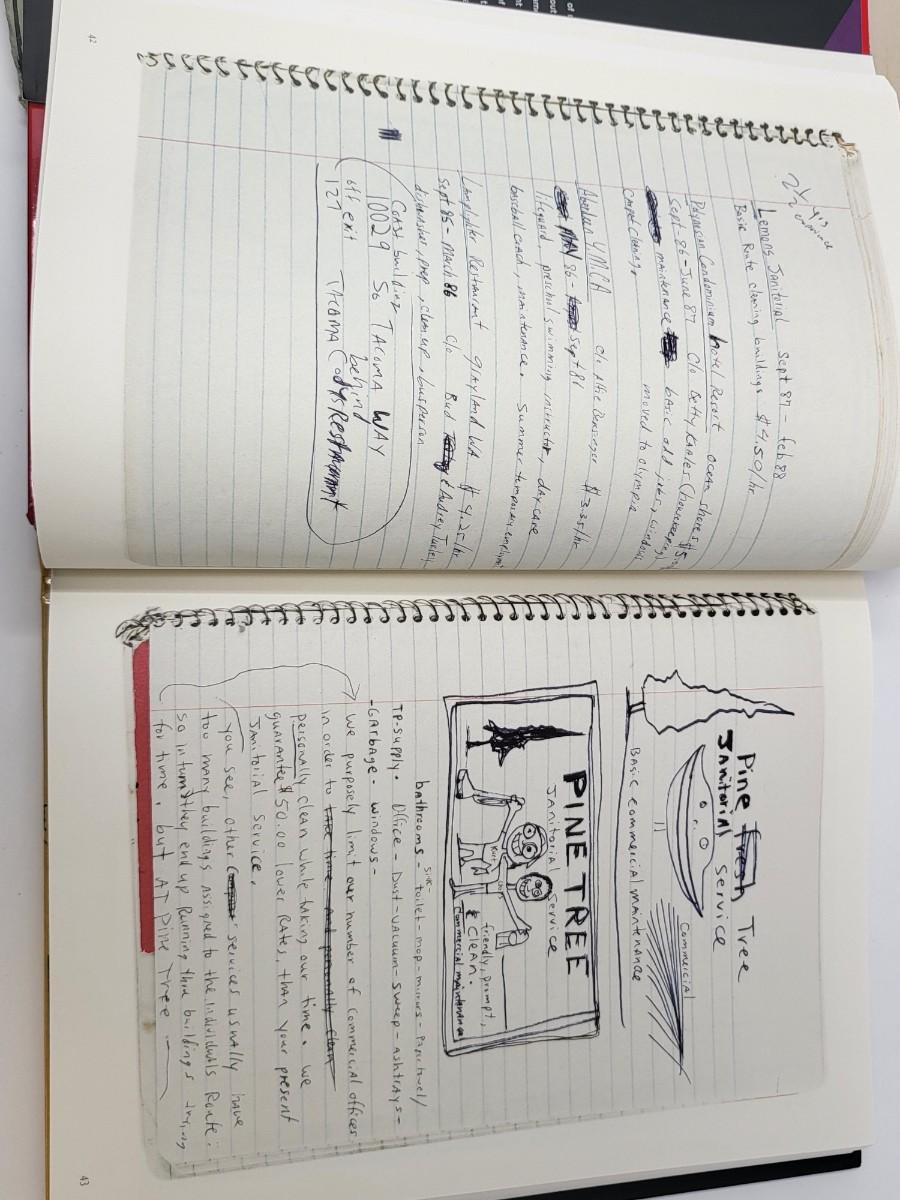 42
2 1/2 yrs
experience
Lemons Janitorial sept 87 - feb 88
Basic Route cleaning buildings $4.50/hr
Polynesian Condominium hotel Resort ocean shores $5.
Sept. 86 - June 87 c/o Betty (housekeeping)
maintenance basic odd jobs, windows
carpet cleaning moved to olympia
Aberdeen YMCA c/o $3.35/hr
MAY 86 - Sept 86
lifeguard, preschool swimming instructor, daycare
baseball coach, maintenance. summer temporary
Lamplighter Restaurant GRAYLAND WA $4.25/hr
Sept 85 - MARCH 86 c/o Bud & Audrey
dishwasher, prep, clean up, busperson
Coast building
10029 So TACOMA WAY
off exit behind
127 TACOMA Codys RESTAURANT
Pine fresh Tree
JANitorial Service
Commercial
Basic commercial maintenance
PINE TREE
JANitorial Service
friendly, prompt,
& CleAN.
Commercial maintenance
Kurt
sink-
bathrooms - toilet - mop - mirrors - Paper towel/
TP-supply. Office - Dust - vacuum - sweep - ashtrays -
- GARbage - windows -
We purposely limit our number of commercial offices
in order to take time and personally clean
personally clean while taking our time. we
guarantee $50.00 lower Rates, than your present
JANitorial Service.
You see, other services usually have
too many buildings Assigned to the individuals Route.
so in turn they end up Running thru buildings trying
for time. but AT Pine tree
43